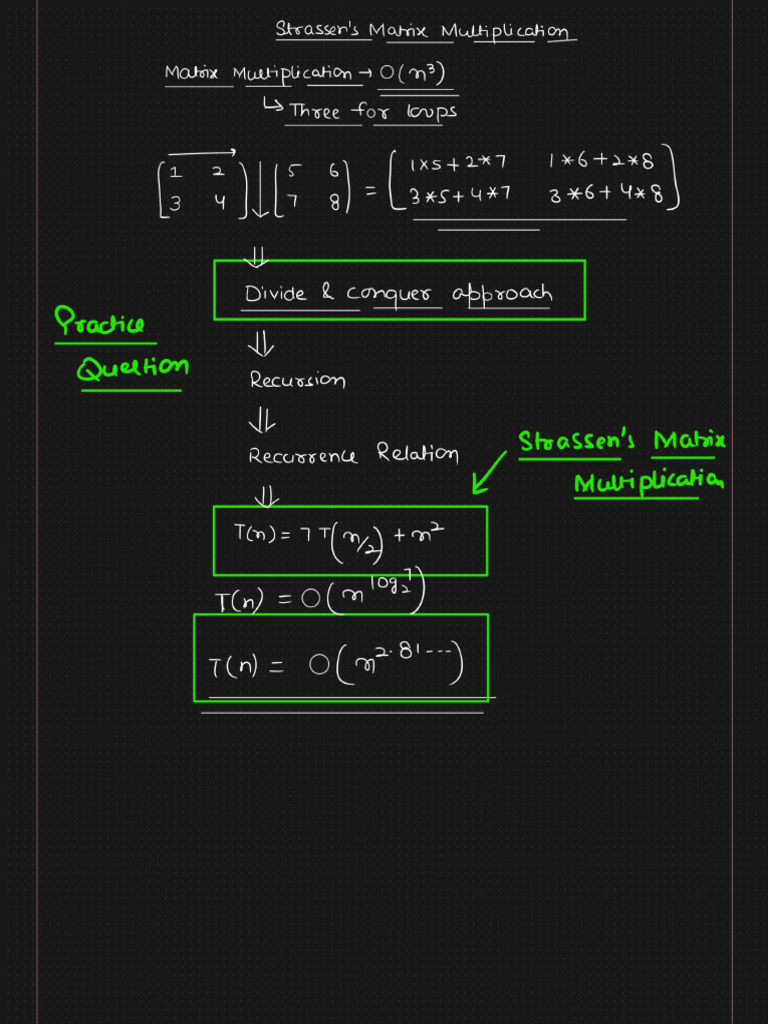 Strassen's Matrix Multiplication
Matrix Multiplication → O(n³)
↳ Three for loops
[1 2
3 4] ↓ [5 6
7 8] = [1×5+2*7 1*6+2*8
3*5+4*7 3*6+4*8]
⇓
Divide & Conquer approach
Practice
Question
⇓
Recursion
⇓
Recurrence Relation
Strassen's Matrix
Multiplication
⇓
T(n) = 7T(n/2) + n²
T(n) = O(n^log₂7)
T(n) = O(n^2.81...)